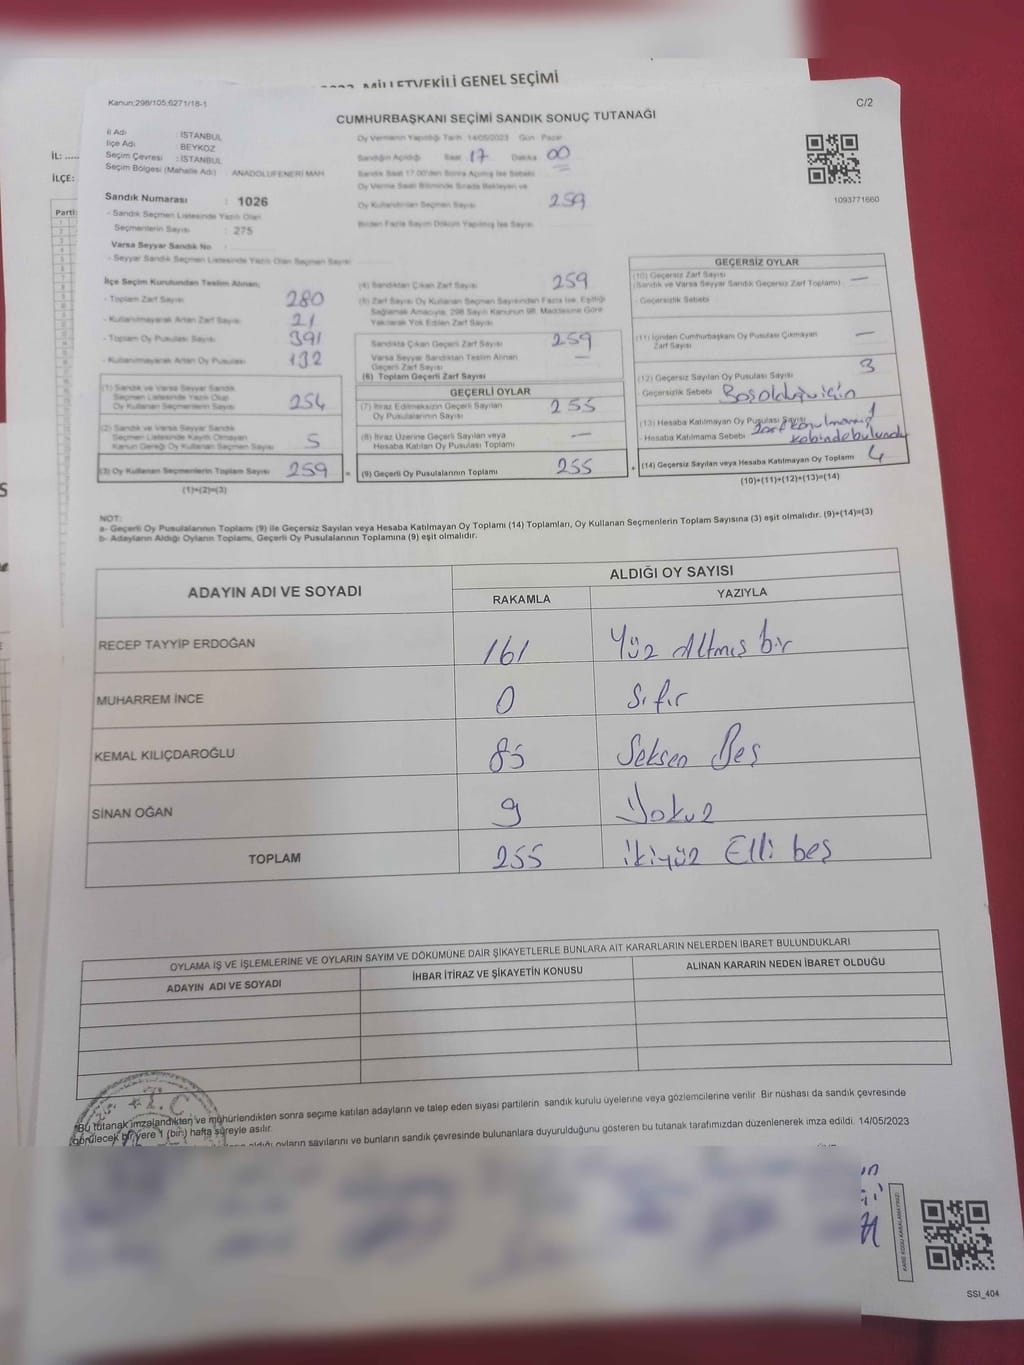 2023 MİLLETVEKİLİ GENEL SEÇİMİ
Kanun:298/105;6271/18-1
C/2
CUMHURBAŞKANI SEÇİMİ SANDIK SONUÇ TUTANAĞI
İL: .....
İLÇE:
Parti
İl Adı : İSTANBUL
İlçe Adı : BEYKOZ
Seçim Çevresi : İSTANBUL
Seçim Bölgesi (Mahalle Adı) : ANADOLUFENERİ MAH
Sandık Numarası : 1026
- Sandık Seçmen Listesinde Yazılı Olan
Seçmenlerin Sayısı : 275
Varsa Seyyar Sandık No
- Seyyar Sandık Seçmen Listesinde Yazılı Olan Seçmen Sayısı
Oy Vermenin Yapıldığı Tarih 14/05/2023 Gün Pazar
Sandığın Açıldığı Saat 17 Dakika 00
Sandık Saat 17.00'den Sonra Açılmış İse Sebebi
Oy Verme Saati Bitiminde Sırada Bekleyen ve
Oy Kullandırılan Seçmen Sayısı 259
Birden Fazla Sayım Döküm Yapılmış İse Sayısı
1093771660
İlçe Seçim Kurulundan Teslim Alınan;
- Toplam Zarf Sayısı 280
- Kullanılmayarak Artan Zarf Sayısı 21
- Toplam Oy Pusulası Sayısı 391
- Kullanılmayarak Artan Oy Pusulası 132
(1) Sandık ve Varsa Seyyar Sandık
Seçmen Listesinde Yazılı Olup
Oy Kullanan Seçmenlerin Sayısı 254
(2) Sandık ve Varsa Seyyar Sandık
Seçmen Listesinde Kayıtlı Olmayan
Kanun Gereği Oy Kullanan Seçmen Sayısı 5
(3) Oy Kullanan Seçmenlerin Toplam Sayısı 259 =
(1)+(2)=(3)
(4) Sandıktan Çıkan Zarf Sayısı 259
(5) Zarf Sayısı Oy Kullanan Seçmen Sayısından Fazla İse, Eşitliği
Sağlamak Amacıyla, 298 Sayılı Kanunun 98. Maddesine Göre
Yakılarak Yok Edilen Zarf Sayısı
Sandıkta Çıkan Geçerli Zarf Sayısı 259
Varsa Seyyar Sandıktan Teslim Alınan
Geçerli Zarf Sayısı —
(6) Toplam Geçerli Zarf Sayısı
GEÇERLİ OYLAR
(7) İtiraz Edilmeksizin Geçerli Sayılan
Oy Pusulalarının Sayısı 255
(8) İtiraz Üzerine Geçerli Sayılan veya
Hesaba Katılan Oy Pusulası Toplamı —
(9) Geçerli Oy Pusulalarının Toplamı 255 +
GEÇERSİZ OYLAR
(10) Geçersiz Zarf Sayısı
(Sandık ve Varsa Seyyar Sandık Geçersiz Zarf Toplamı) —
- Geçersizlik Sebebi
(11) İçinden Cumhurbaşkanı Oy Pusulası Çıkmayan
Zarf Sayısı —
(12) Geçersiz Sayılan Oy Pusulası Sayısı 3
- Geçersizlik Sebebi Boş olduğu için
(13) Hesaba Katılmayan Oy Pusulası Sayısı 1
- Hesaba Katılmama Sebebi zarf konulmamış
kabinde bulundu
(14) Geçersiz Sayılan veya Hesaba Katılmayan Oy Toplamı 4
(10)+(11)+(12)+(13)=(14)
NOT:
a- Geçerli Oy Pusulalarının Toplamı (9) ile Geçersiz Sayılan veya Hesaba Katılmayan Oy Toplamı (14) Toplamları, Oy Kullanan Seçmenlerin Toplam Sayısına (3) eşit olmalıdır. (9)+(14)=(3)
b- Adayların Aldığı Oyların Toplamı, Geçerli Oy Pusulalarının Toplamına (9) eşit olmalıdır.
ADAYIN ADI VE SOYADI
ALDIĞI OY SAYISI
RAKAMLA YAZIYLA
RECEP TAYYİP ERDOĞAN 161 Yüz Altmış bir
MUHARREM İNCE 0 Sıfır
KEMAL KILIÇDAROĞLU 85 Seksen Beş
SİNAN OĞAN 9 Dokuz
TOPLAM 255 ikiyüz Elli beş
OYLAMA İŞ VE İŞLEMLERİNE VE OYLARIN SAYIM VE DÖKÜMÜNE DAİR ŞİKAYETLERLE BUNLARA AİT KARARLARIN NELERDEN İBARET BULUNDUKLARI
ADAYIN ADI VE SOYADI İHBAR İTİRAZ VE ŞİKAYETİN KONUSU ALINAN KARARIN NEDEN İBARET OLDUĞU
T.C
*Bu tutanak imzalandıktan ve mühürlendikten sonra seçime katılan adayların ve talep eden siyasi partilerin sandık kurulu üyelerine veya gözlemcilerine verilir. Bir nüshası da sandık çevresinde
görülecek bir yere 1 (bir) hafta süreyle asılır.
aldığı oyların sayılarını ve bunların sandık çevresinde bulunanlara duyurulduğunu gösteren bu tutanak tarafımızdan düzenlenerek imza edildi. 14/05/2023
KARE KODU KARALAMAYINIZ!
SSI_404